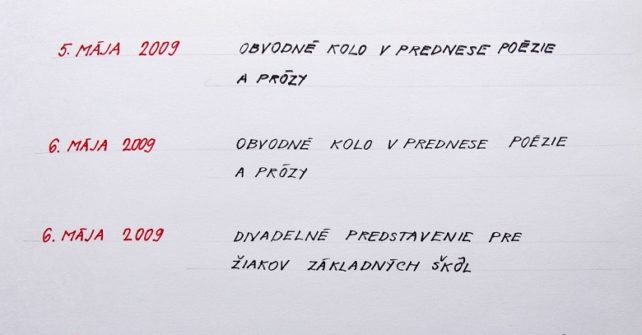 5. MÁJA 2009 OBVODNÉ KOLO V PREDNESE POÉZIE
A PRÓZY
6. MÁJA 2009 OBVODNÉ KOLO V PREDNESE POÉZIE
A PRÓZY
6. MÁJA 2009 DIVADELNÉ PREDSTAVENIE PRE
ŽIAKOV ZÁKLADNÝCH ŠKÔL